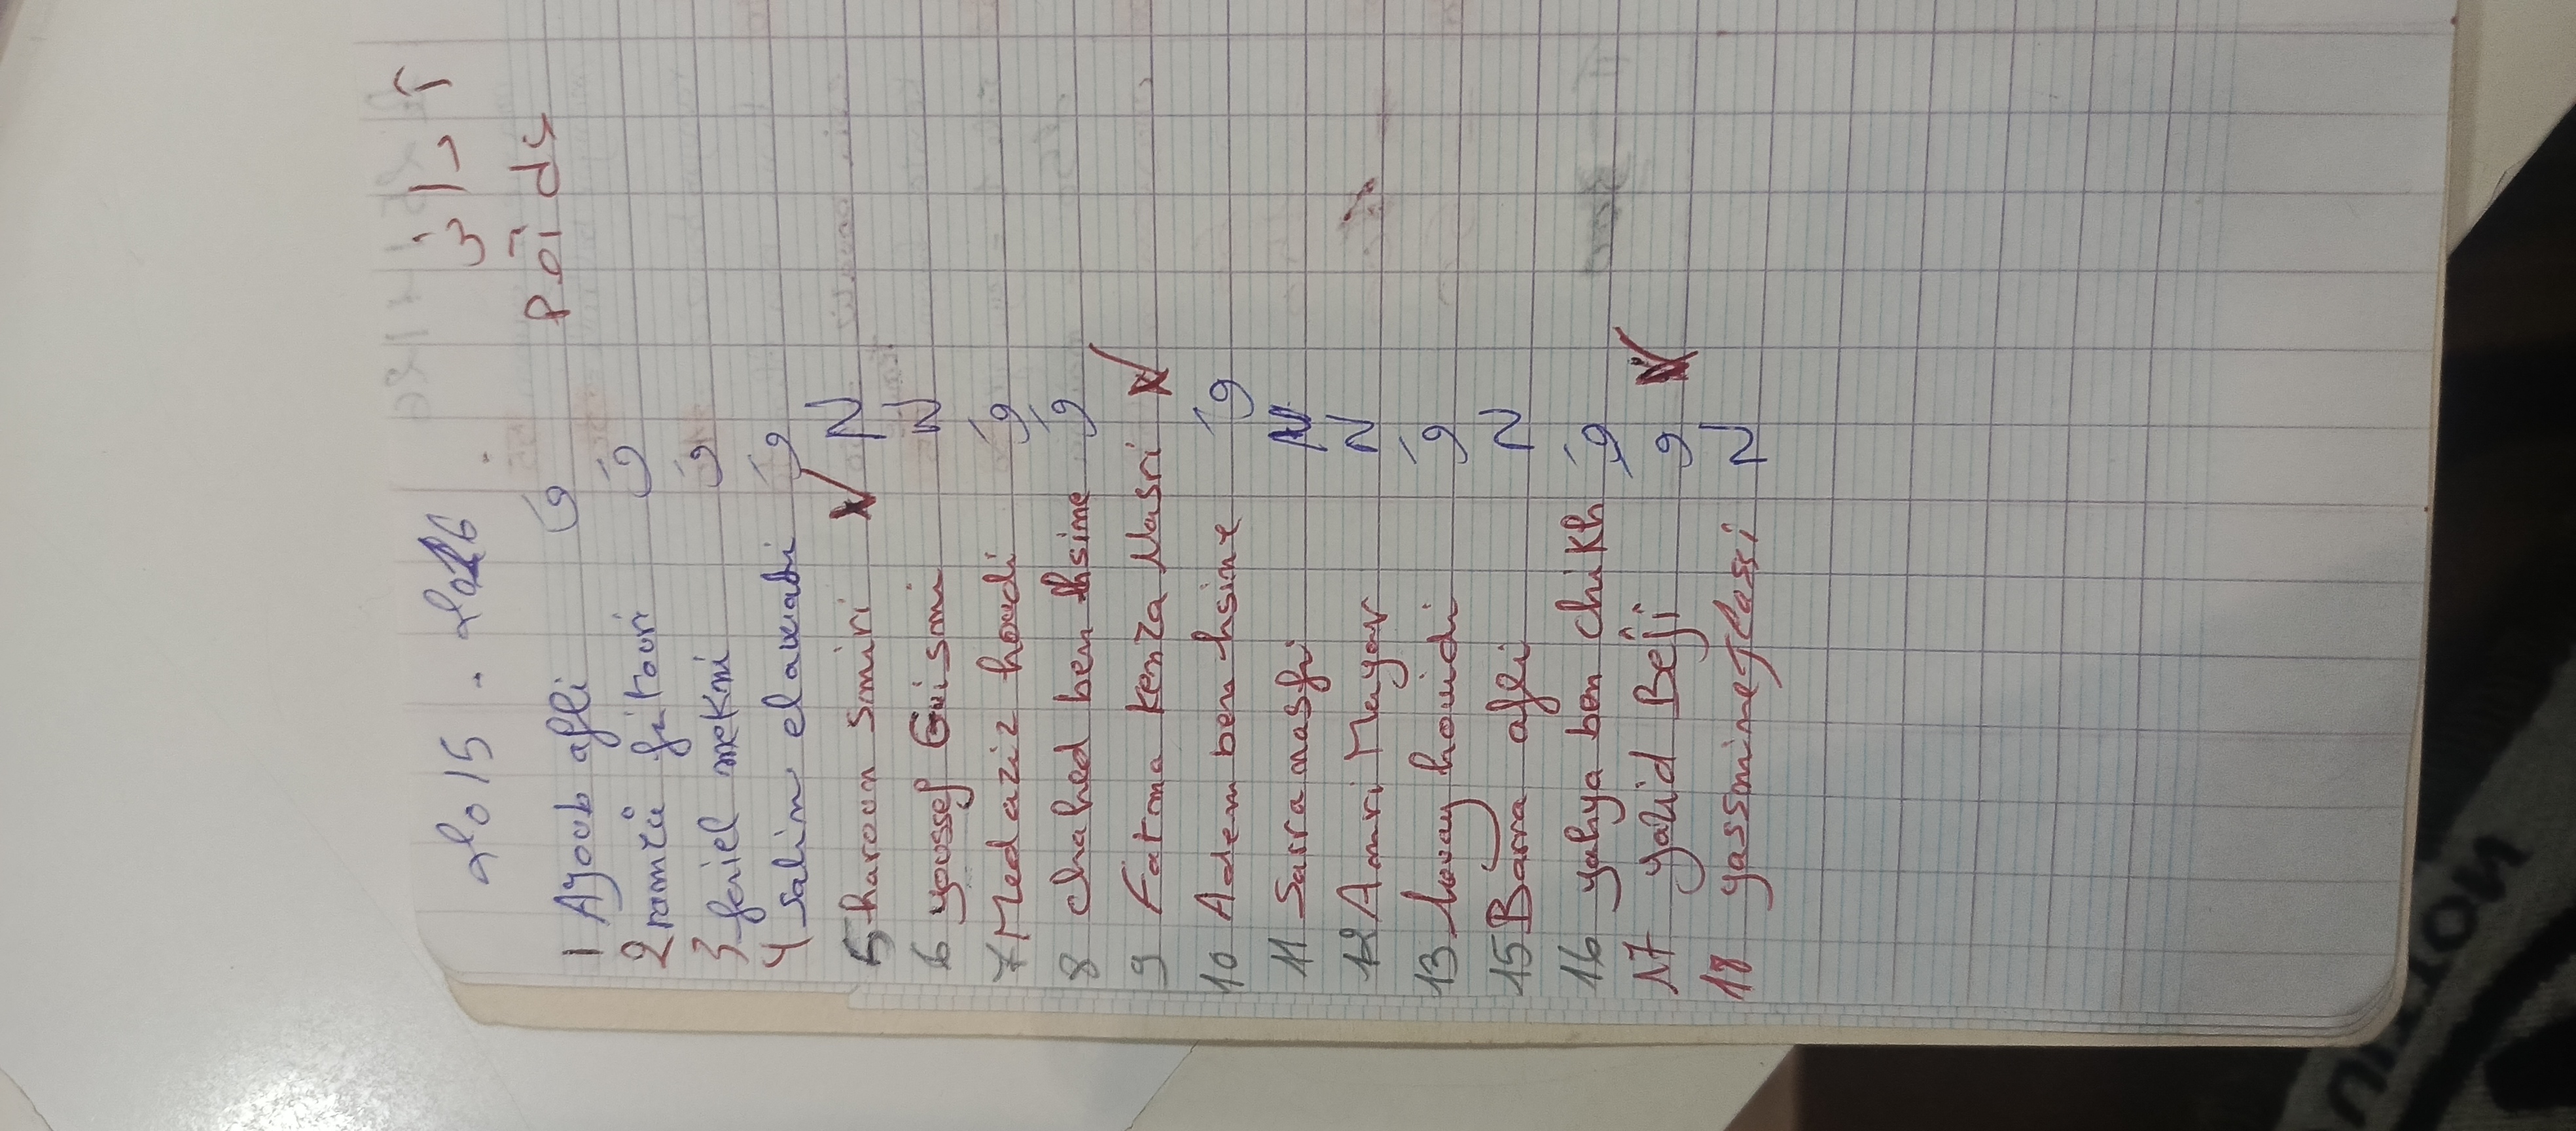 2015 - 2016
Poids
1 Ayoub afli و
2 ramzi fitouri و
3 feriel mekni و
4 salim elawadi و
5 haroun Smiri N
6 youssef Guismi N
7 Med aziz houdi و
8 chahed ben hsine و
9 Fatma Kenza Nasri
10 Adem ben hsine و
11 Sarra nasfi N
12 Amri Mayar N
13 louay houidi و
15 Barra afli N
16 yahya ben chikh و
17 yahid Beji و
18 yassmine Jlassi N